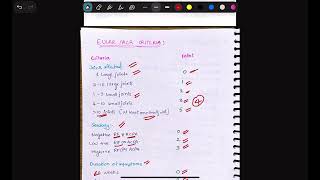 EULAR/ACR CRITERIA:
Criteria Total
Joint affected
1 Large joints 0
2-10 large joints 1
1-3 small joints 2
4-10 small joints 3
>10 Joints (at least one small joint) 5
Serology
Negative RF & ACPA 0
Low +ve RF or ACPA 2
High +ve RF or ACPA 3
Duration of symptoms
weeks 0